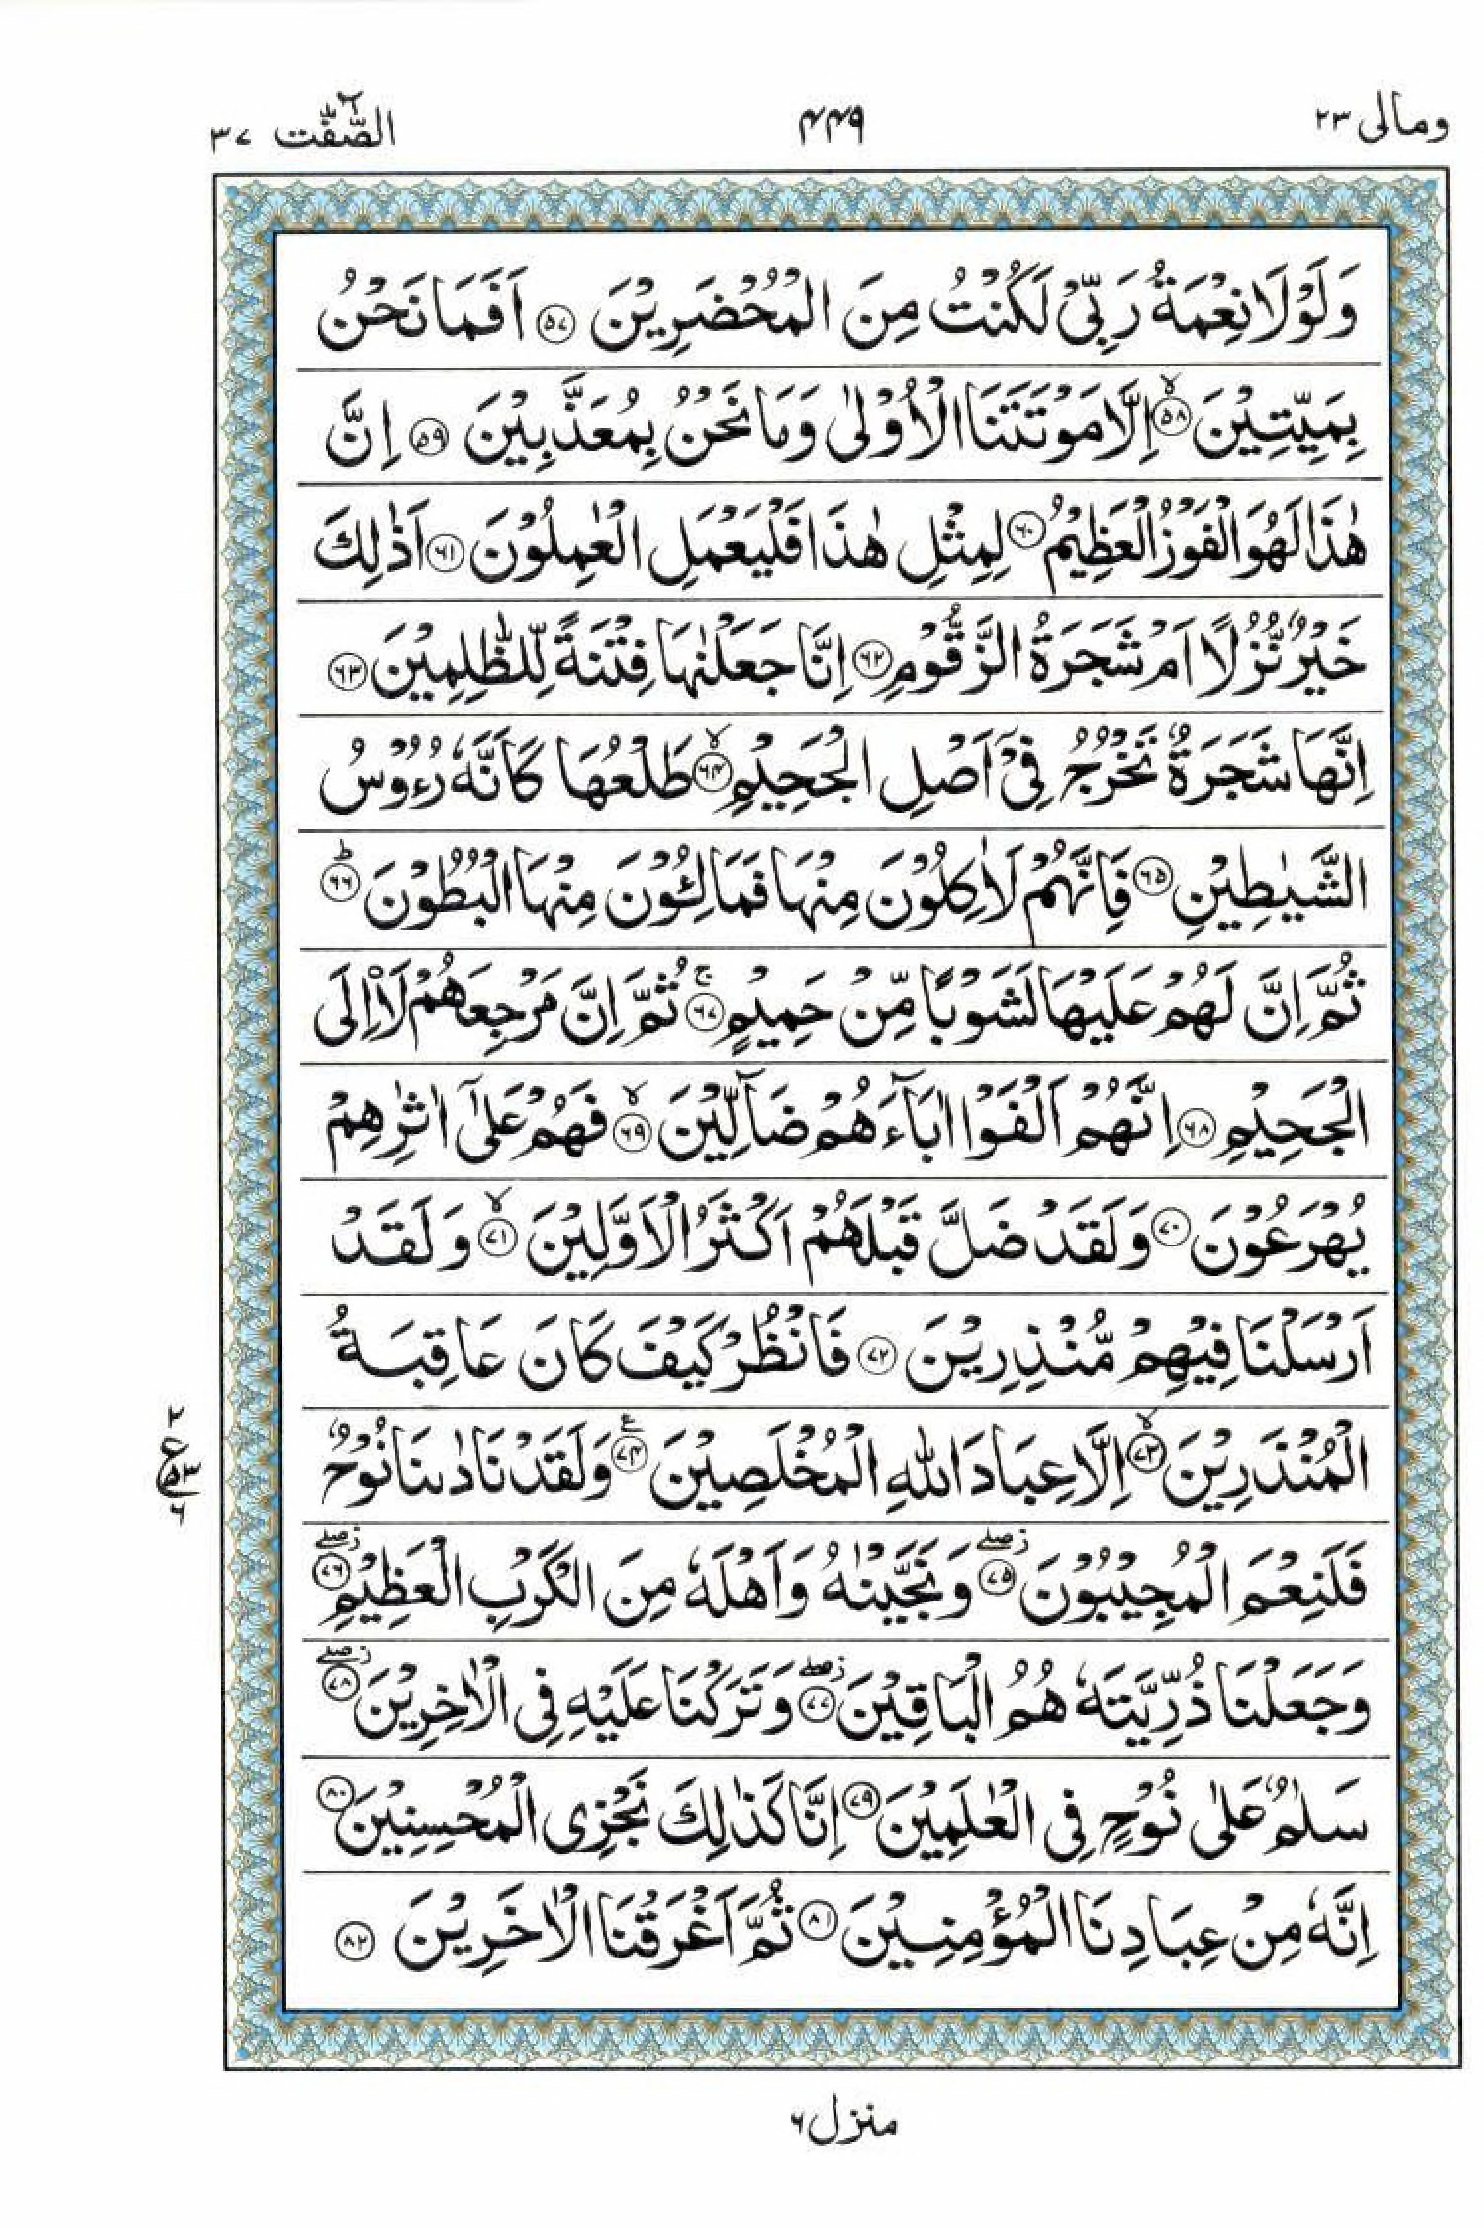 ومالی ۲۳
۴۴۹
الصّٰٓفّٰت ۳۷
وَلَوْلَا نِعْمَةُ رَبِّیْ لَكُنْتُ مِنَ الْمُحْضَرِیْنَ ۵۷ اَفَمَا نَحْنُ
بِمَیِّتِیْنَ ۙ۵۸ اِلَّا مَوْتَتَنَا الْاُوْلٰی وَمَا نَحْنُ بِمُعَذَّبِیْنَ ۵۹ اِنَّ
هٰذَا لَهُوَ الْفَوْزُ الْعَظِیْمُ ۶۰ لِمِثْلِ هٰذَا فَلْیَعْمَلِ الْعٰمِلُوْنَ ۶۱ اَذٰلِكَ
خَیْرٌ نُّزُلًا اَمْ شَجَرَةُ الزَّقُّوْمِ ۶۲ اِنَّا جَعَلْنٰهَا فِتْنَةً لِّلظّٰلِمِیْنَ ۶۳
اِنَّهَا شَجَرَةٌ تَخْرُجُ فِیْۤ اَصْلِ الْجَحِیْمِ ۙ۶۴ طَلْعُهَا كَاَنَّهٗ رُءُوْسُ
الشَّیٰطِیْنِ ۶۵ فَاِنَّهُمْ لَاٰكِلُوْنَ مِنْهَا فَمَالِـُٔوْنَ مِنْهَا الْبُطُوْنَ ؕ۶۶
ثُمَّ اِنَّ لَهُمْ عَلَیْهَا لَشَوْبًا مِّنْ حَمِیْمٍ ۚ۶۷ ثُمَّ اِنَّ مَرْجِعَهُمْ لَا۠اِلَی
الْجَحِیْمِ ۶۸ اِنَّهُمْ اَلْفَوْا اٰبَآءَهُمْ ضَآلِّیْنَ ۙ۶۹ فَهُمْ عَلٰۤی اٰثٰرِهِمْ
یُهْرَعُوْنَ ۷۰ وَلَقَدْ ضَلَّ قَبْلَهُمْ اَكْثَرُ الْاَوَّلِیْنَ ۙ۷۱ وَلَقَدْ
اَرْسَلْنَا فِیْهِمْ مُّنْذِرِیْنَ ۷۲ فَانْظُرْ كَیْفَ كَانَ عَاقِبَةُ
الْمُنْذَرِیْنَ ۙ۷۳ اِلَّا عِبَادَ اللّٰهِ الْمُخْلَصِیْنَ ۷۴ع وَلَقَدْ نَادٰىنَا نُوْحٌ
فَلَنِعْمَ الْمُجِیْبُوْنَ ز صلے ۷۵ وَنَجَّیْنٰهُ وَاَهْلَهٗ مِنَ الْكَرْبِ الْعَظِیْمِ ز صلے ۷۶
وَجَعَلْنَا ذُرِّیَّتَهٗ هُمُ الْبَاقِیْنَ ز صلے ۷۷ وَتَرَكْنَا عَلَیْهِ فِی الْاٰخِرِیْنَ ز صلے ۷۸
سَلٰمٌ عَلٰی نُوْحٍ فِی الْعٰلَمِیْنَ ۷۹ اِنَّا كَذٰلِكَ نَجْزِی الْمُحْسِنِیْنَ ۸۰
اِنَّهٗ مِنْ عِبَادِنَا الْمُؤْمِنِیْنَ ۸۱ ثُمَّ اَغْرَقْنَا الْاٰخَرِیْنَ ۸۲
۲
ع
۵۳
۶
منزل ۶